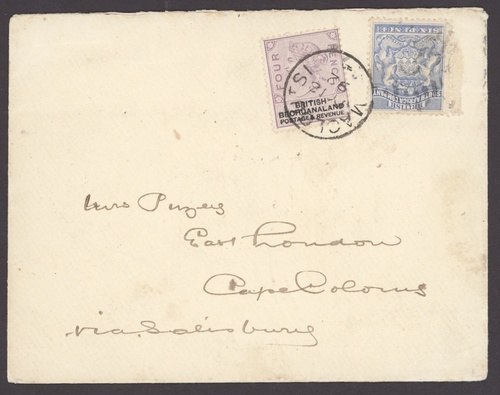 FOUR PENCE
BRITISH
BECHUANALAND
POSTAGE & REVENUE
SIXPENCE
Mrs
East London
Cape Colony
via Salisbury